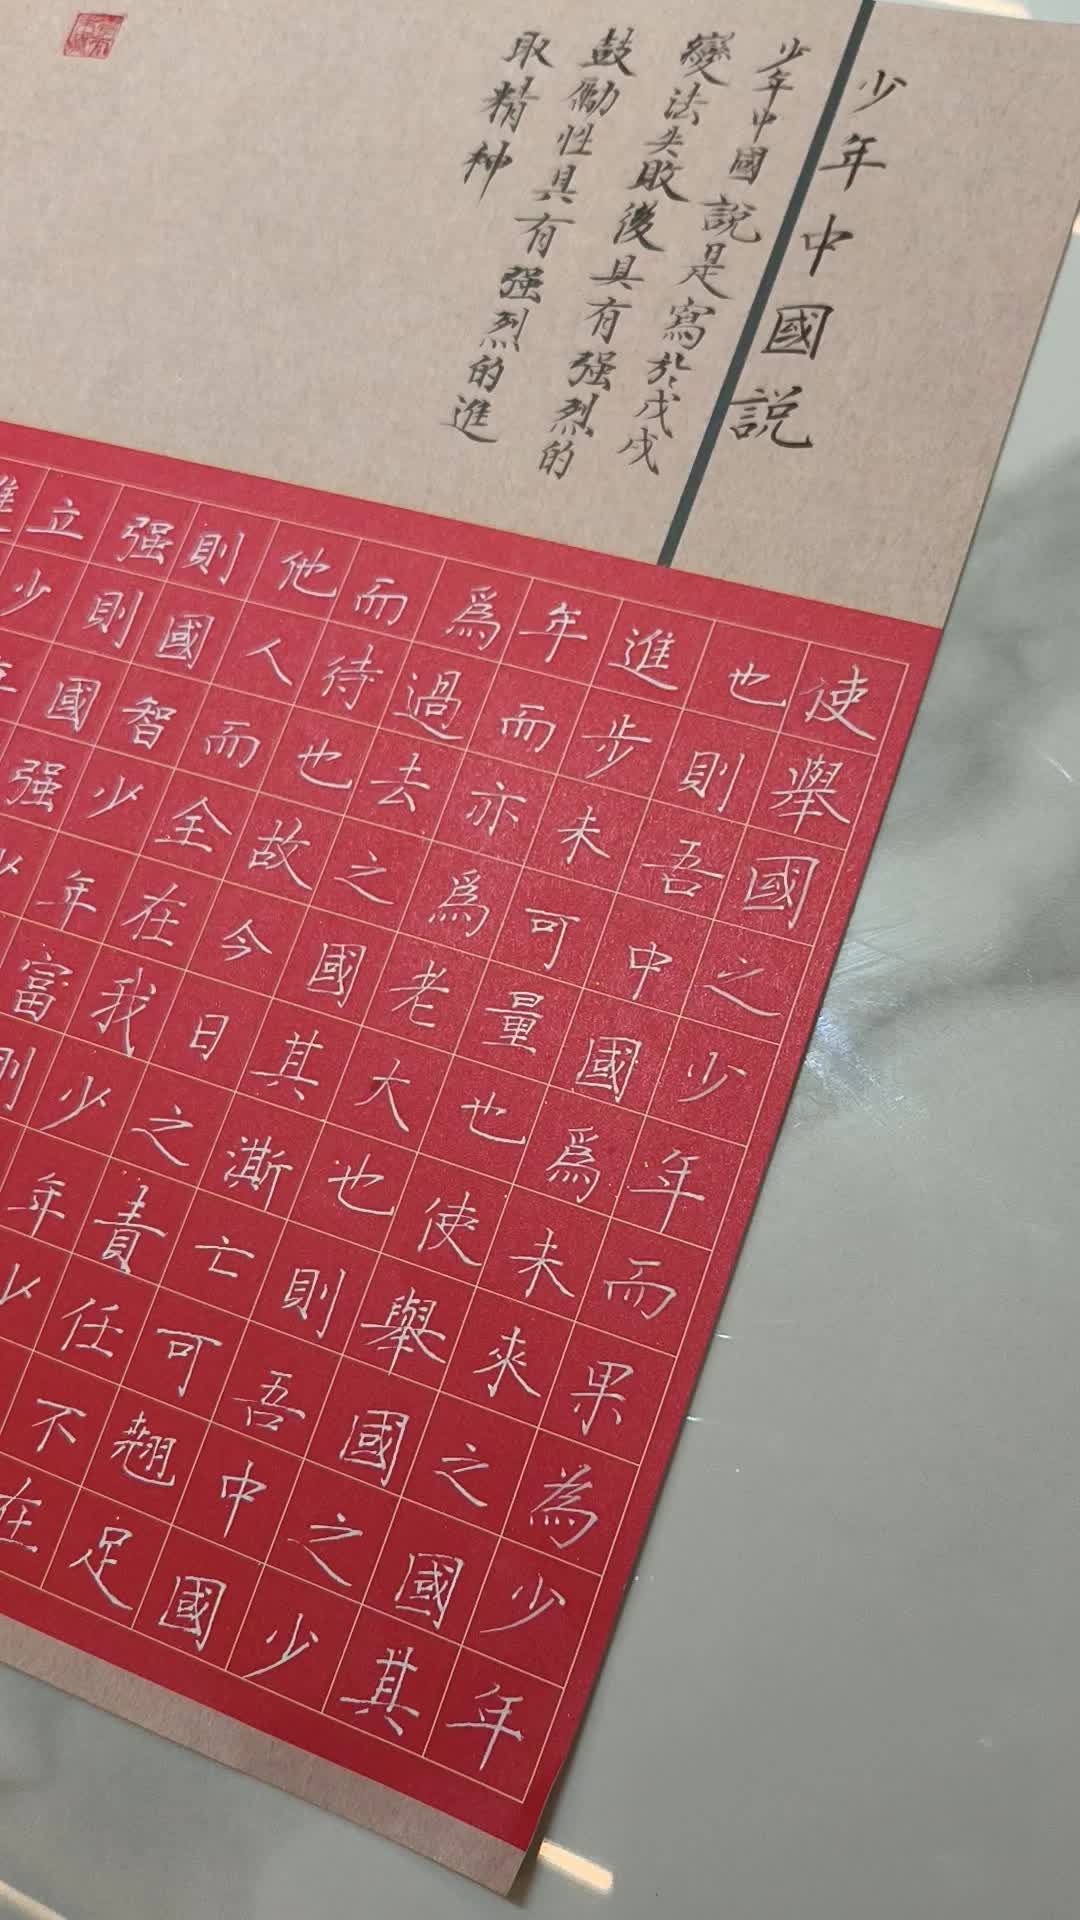 少年中國說
少年中國說是寫於戊戌
變法失敗後具有强烈的
鼓勵性具有强烈的進
取精种
使舉國之少年而果為少年
也則吾中國爲未來之國其
進步未可量也使舉國之少
年而亦爲老大也則吾中國
爲過去之國其澌亡可翹足
而待也故今日之責任不在
他人而全在我少年少
則國智少年富則
强則國强少
立少年
進